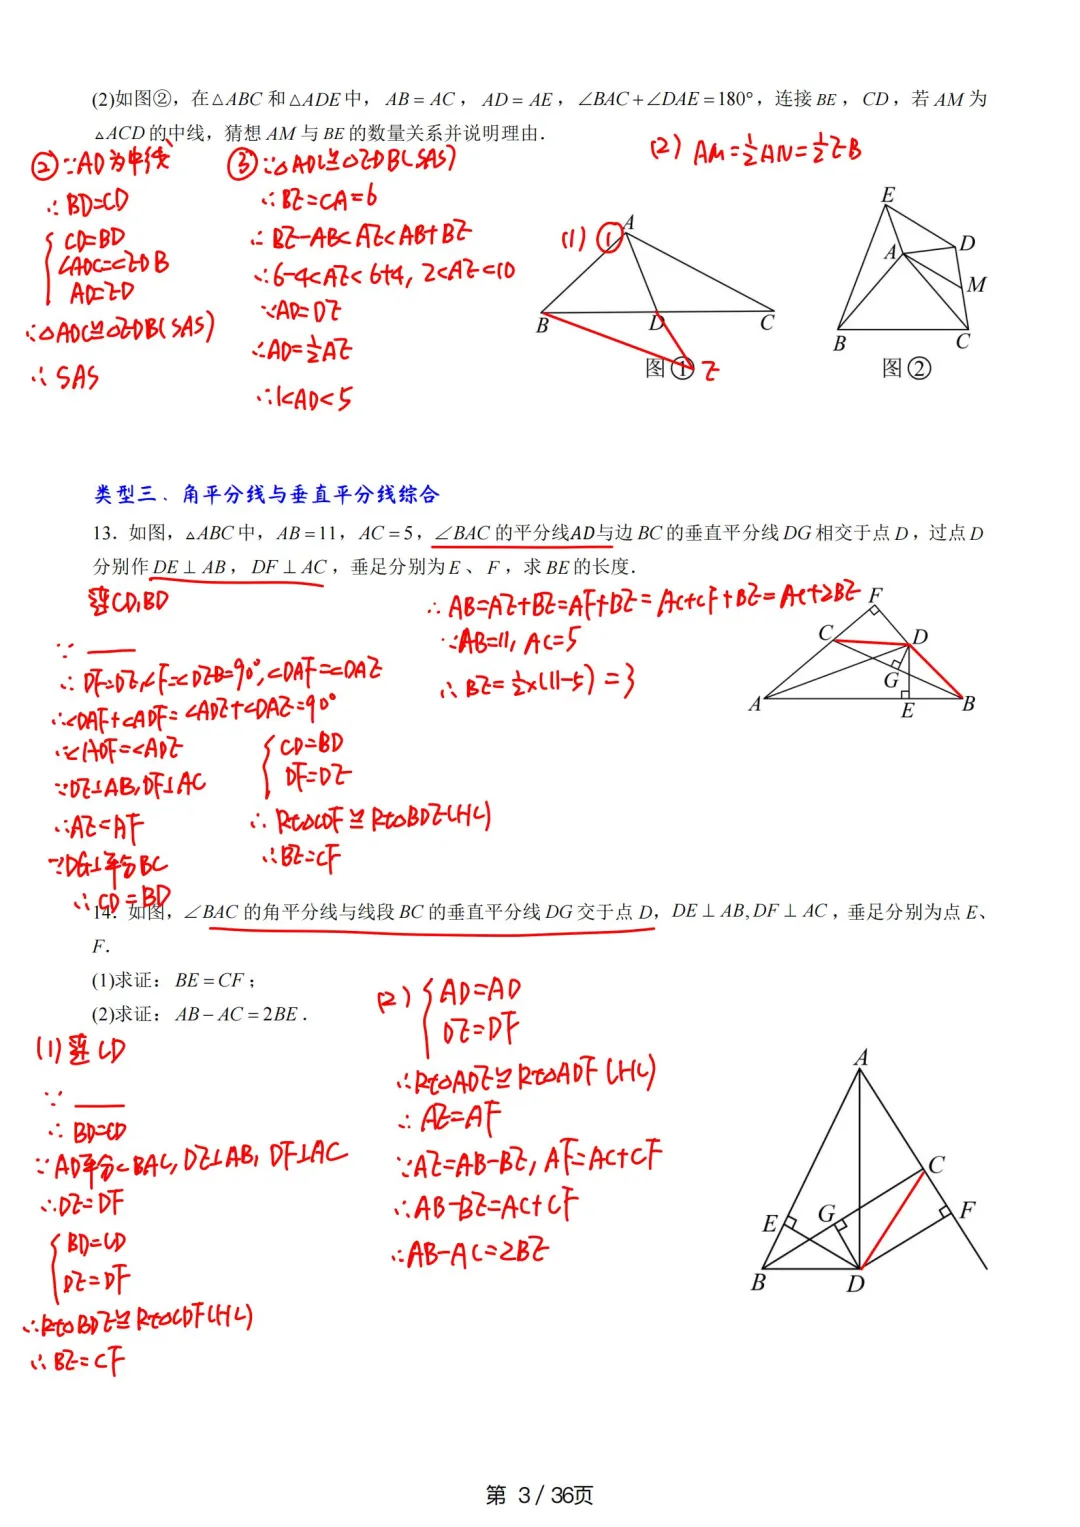 (2)如图②，在△ABC 和△ADE 中，AB = AC，AD = AE，∠BAC+∠DAE =180°，连接 BE，CD，若 AM 为
△ACD 的中线，猜想 AM 与 BE 的数量关系并说明理由．
②∵AD为中线
∴BD=CD
CD=BD
∠ADC=∠EDB
AD=ED
∴△ADC≌△EDB(SAS)
∴SAS
③∵△ADC≌△EDB(SAS)
∴BE=CA=6
∴BE-AB<AE<AB+BE
∴6-4<AE<6+4, 2<AE<10
∵AD=DE
∴AD=½AE
∴1<AD<5
(2) AM=½AN=½EB
(1) ①
A
B
D
C
E
图①
E
D
A
M
B
C
图②
类型三、角平分线与垂直平分线综合
13．如图，△ABC 中，AB =11，AC = 5，∠BAC 的平分线AD与边 BC 的垂直平分线 DG 相交于点 D，过点 D
分别作 DE ⊥ AB，DF ⊥ AC，垂足分别为 E、F，求 BE 的长度．
连CD,BD
∵
∴DF=DE,∠F=∠DEB=90°,∠DAF=∠DAE
∴∠DAF+∠ADF=∠ADE+∠DAE=90°
∴∠ADF=∠ADE
∵DE⊥AB,DF⊥AC
∴AE=AF
∵DG⊥平分BC
∴CD=BD
CD=BD
DF=DE
∴Rt△CDF≌Rt△BDE(HL)
∴BE=CF
∴AB=AE+BE=AF+BE=AC+CF+BE=AC+2BE
∵AB=11, AC=5
∴BE=½×(11-5)=3
F
C
D
G
A
E
B
14．如图，∠BAC 的角平分线与线段 BC 的垂直平分线 DG 交于点 D，DE ⊥ AB, DF ⊥ AC，垂足分别为点 E、
F．
(1)求证：BE = CF；
(2)求证：AB − AC = 2BE．
(1)连CD
∵
∴BD=CD
∵AD平分∠BAC, DE⊥AB, DF⊥AC
∴DE=DF
BD=CD
DE=DF
∴Rt△BDE≌Rt△CDF(HL)
∴BE=CF
(2) AD=AD
DE=DF
∴Rt△ADE≌Rt△ADF(HL)
∴AE=AF
∵AE=AB-BE, AF=AC+CF
∴AB-BE=AC+CF
∴AB-AC=2BE
A
C
E
G
F
B
D
第 3 / 36页